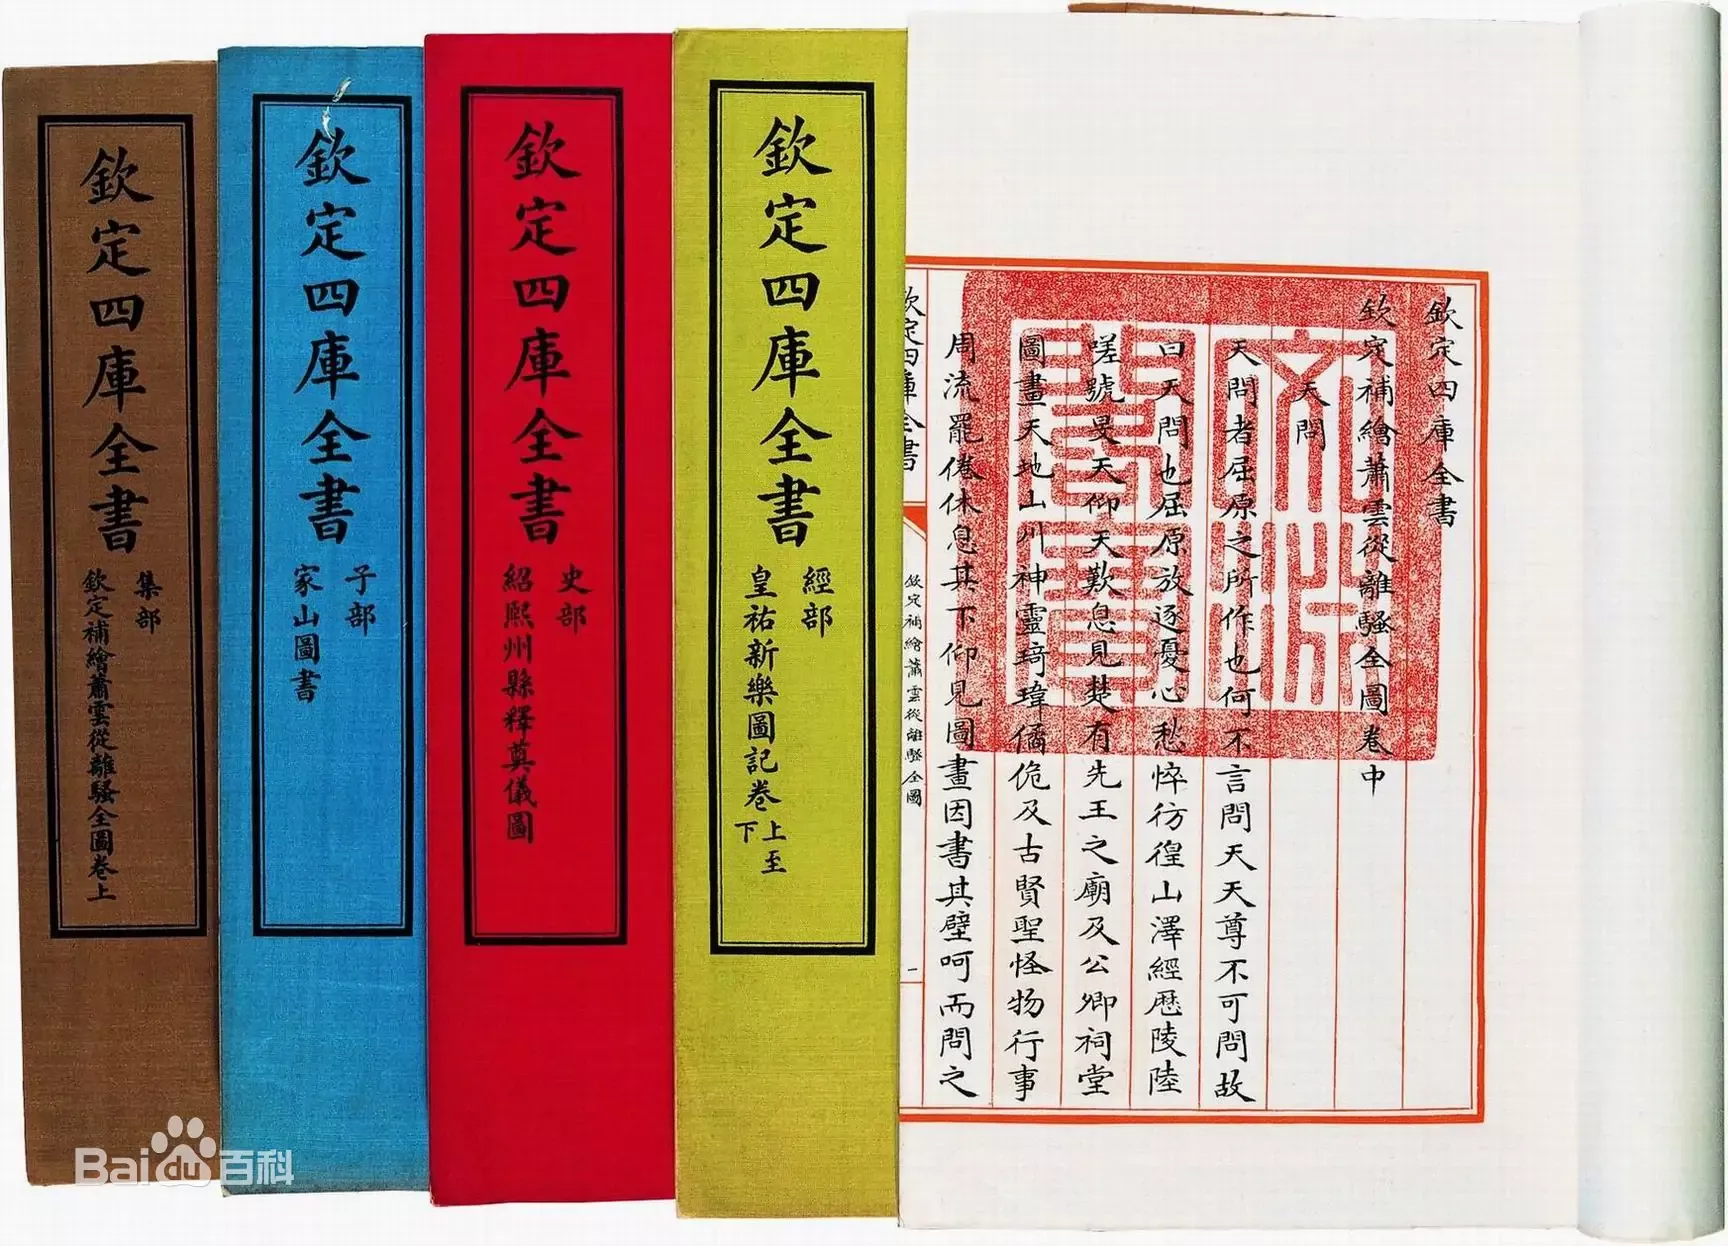 欽定四庫全書
欽定補繪蕭雲從離騷全圖卷中
天問
天問者屈原之所作也何不言問天天尊不可問故
曰天問也屈原放逐憂心愁悴彷徨山澤經歷陵陸
嗟號旻天仰天歎息見楚有先王之廟及公卿祠堂
圖畫天地山川神靈琦瑋僪佹及古賢聖怪物行事
周流罷倦休息其下仰見圖畫因書其壁呵而問之
文
閣寶
欽定四庫全書
欽定補繪蕭雲從離騷全圖
一
欽定四庫全書
經部
皇祐新樂圖記卷上至下
欽定四庫全書
史部
紹熙州縣釋奠儀圖
欽定四庫全書
子部
家山圖書
欽定四庫全書
集部
欽定補繪蕭雲從離騷全圖卷上
Bai du 百科